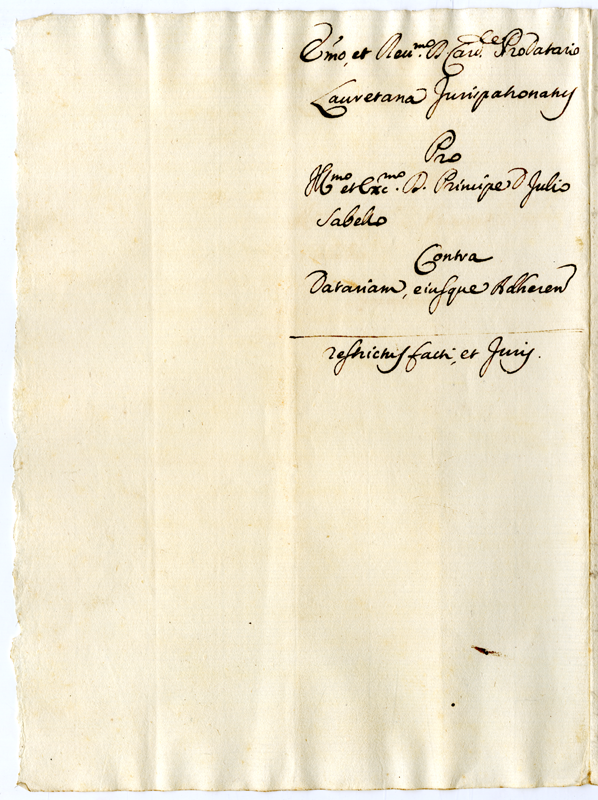 Emo, et Reu.mo D Card.le ProDatario
Lauretana Jurispatronatus
Pro
Ill.mo et Exc.mo D. Principe D Julio
Sabello
Contra
Datariam, eiusque Adheren
restrictus facti, et Juris.